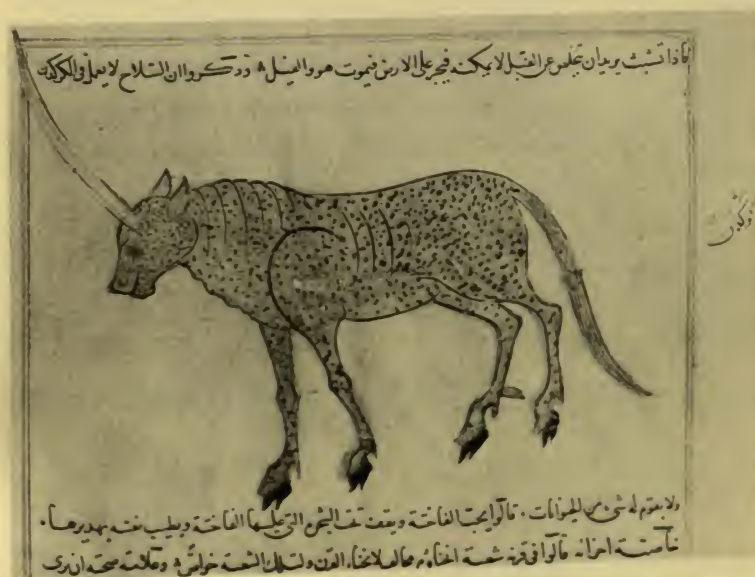 فاذا تشبث يريد ان يتخلص عن الفيل لا يمكنه فيخر على الارض فيموت هو والفيل وذكروا ان السلاح لا يعمل في الكركدن
ولا يقوم له شئ من الحيوانات . قالوا يحب الفاختة ويقف تحت الشجرة التي عليها الفاختة ويطيب نفسه بهديرها .
خاصية اجزائه قالوا في قرنه شعبة انحناؤه مخالف لانحناء القرن ولتلك الشعبة خواص وعلامة صحته ان يرى